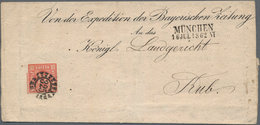 Von der Expedition der Bayerischen Zeitung
MÜNCHEN
16 JUL 1862 VI
An das
Königl. Landgericht